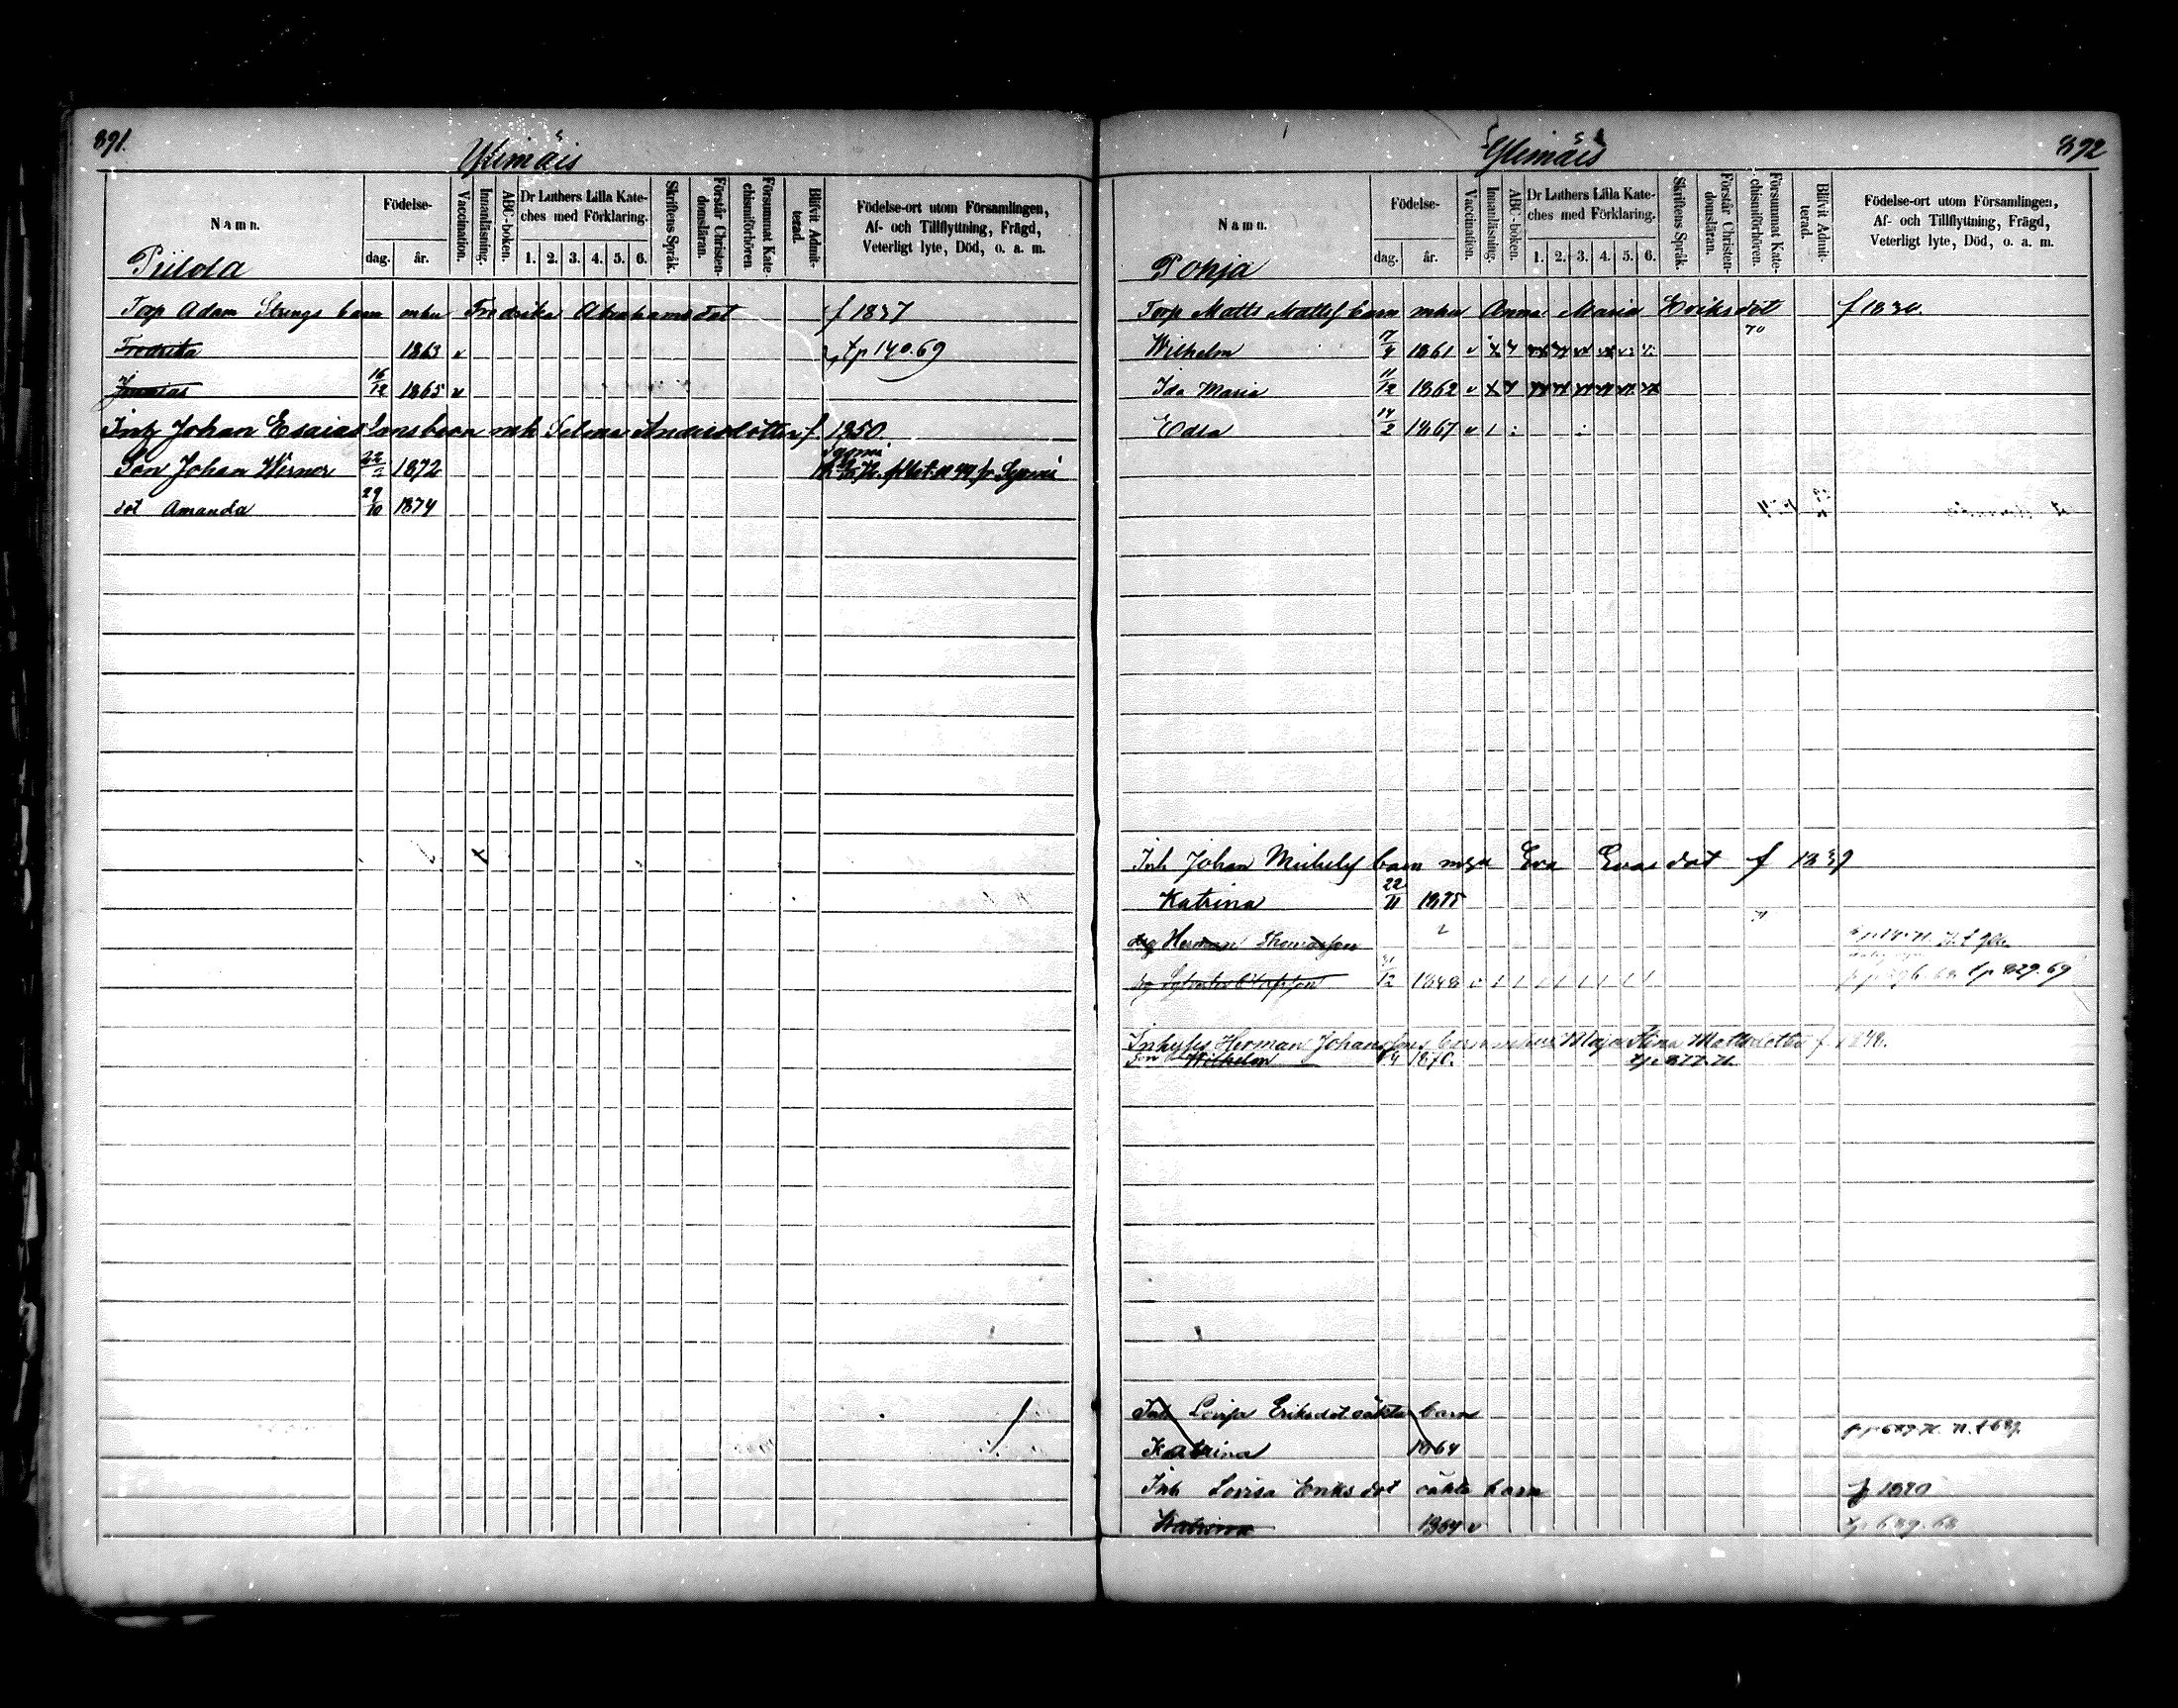 891.
Ylimäis
Namn.
Födelse-
dag.
år.
Vaccination.
Innanläsning.
ABC-boken.
Dr Luthers Lilla Kate-
ches med Förklaring.
1. 2. 3. 4. 5. 6.
Skriftens Språk.
Förstår Christen-
domsläran.
Försummat Kate-
chismiförhören
Blifvit Admit-
terad.
Födelse-ort utom Församlingen,
Af- och Tillflyttning, Frägd,
Veterligt lyte, Död, o. a. m.
Torp Adam Strengs barn mhu Fredrika Abrahamsdot f 1837
Fredrika 1863 v tp 140.69
16/12 1865 v
Inh Johan Esaias sons barn mh Selma Andersdotter f. 1850.
Son Johan Werner 1872
dot Amanda 29/10 1874
892
Ylimäis
Namn.
Födelse-
dag.
år.
Vaccination.
Innanläsning.
ABC-boken.
Dr Luthers Lilla Kate-
ches med Förklaring.
1. 2. 3. 4. 5. 6.
Skriftens Språk.
Förstår Christen-
domsläran.
Försummat Kate-
chismiförhören.
Blifvit Admit-
terad.
Födelse-ort utom Församlingen,
Af- och Tillflyttning, Frägd,
Veterligt lyte, Död, o. a. m.
Pohja
Torp Matts Mattss barn mhu Anna Maria Eriksdot f 1830.
Wilhelm 7/4 1861 v
Ida Maria 11/12 1862 v
Edla 14/2 1867 v
Inh Johan Michelss barn mhu Eva Evasdot f 1839
Katrina 22/11 1875
drg Herman Thomasson
31/12 1848 v tp 829.69
Inhyses Herman Johanssons barn mhu Maja Stina Mattsdotter f 1848.
Son Wilhelm 1870. tp. 877.71.
Inh Lovisa Eriksdot oäkta barn
Katrina 1864
Inh Lovisa Eriksdot oäkta barn f 1840
Katrina 1864 v tp 689.68